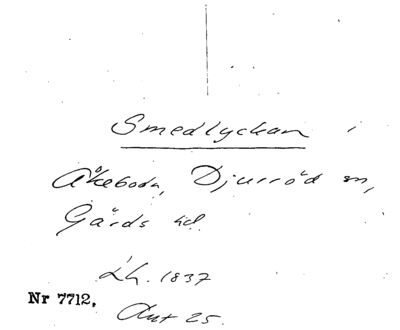 Smedlyckan i
Åkeboda, Djurröd sn,
Gärds hd.
Lh. 1837
Nr 7712.
Akt 25.